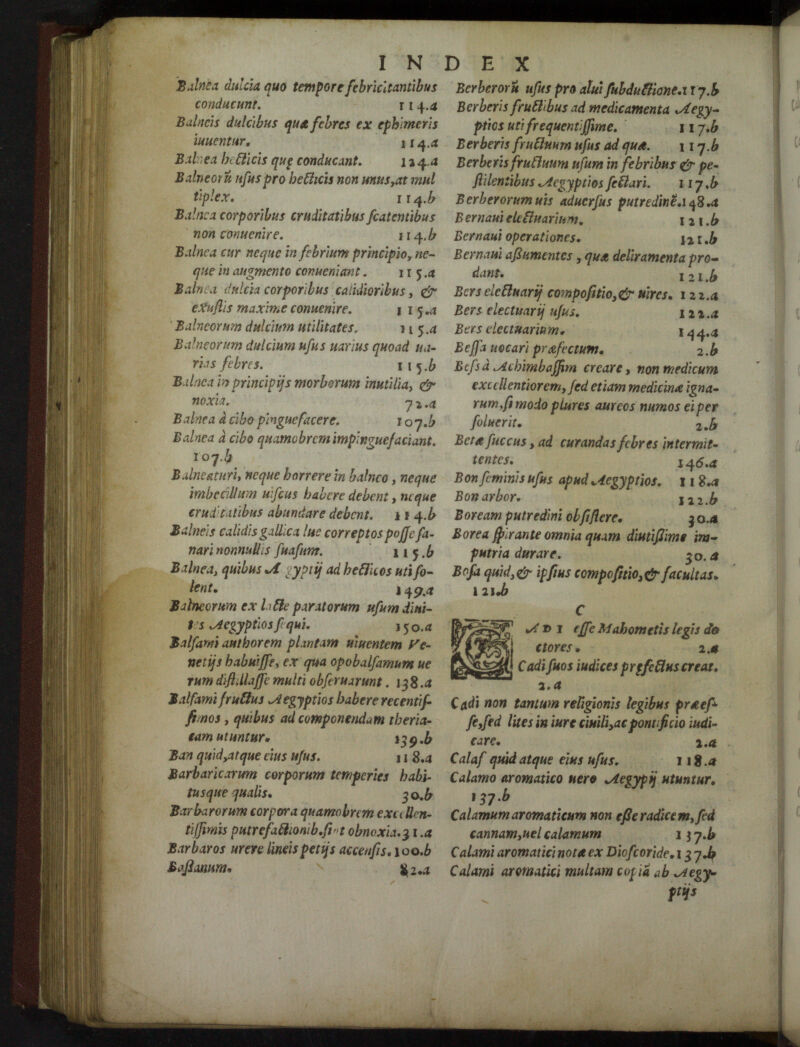 INDEX
Balnea dulcia quo tempore febricitantibus
conducunt. 114.a
Balneis dulcibus quæ febres ex ephimeris
iuuentur. 114.a
Balnea hecticis quę conducant. 124.a
Balneorũ usus pro hecticis non unus,at mul
tiplex. 114.b
Balnea corporibus cruditatibus scatentibus
non conuenire. 114.b
Balnea cur neque in febrium principio, ne-
que in augmento conueniant. 115.a
Balnea dulcia corporibus calidioribus, &
exustis maxime conuenire. 115.a
Balneorum dulcium utilitates. 115.a
Balneorum dulcium usus uarius quoad ua-
rias febres. 115.b
Balnea in principijs morborum inutilia, &
noxia. 72.a
Balnea à cibo pinguefacere. 107.b
Balnea à cibo quamobrem impinguefaciant.
107.b
Balneaturi, neque horrere in balneo, neque
imbecillum uiscus habere debent, neque
cruditatibus abundare debent. 114.b
Balneis calidis gallica lue correptos posse sa-
nari nonnullis suasum. 115.b
Balnea, quibus Aegyptij ad hecticos uti so-
lent. 149.a
Balneorum ex lacte paratorum usum diui-
tes Aegyptios sequi. 150.a
Balsami authorem plantam uiuentem Ve-
netijs habuisse, ex qua opobalsamum ue
rum distillasse multi obseruarunt. 138.a
Balsami fructus Aegyptios habere recentis-
simos, quibus ad componendam theria-
cam utuntur. 139.b
Ban quid,atque eius usus. 118.a
Barbaricarum corporum temperies habi-
tusque qualis. 30.b
Barbarorum corpora quamobrem excellen-
tissimis putrefactionib.sint obnoxia.31.a
Barbaros urere lineis petijs accensis.100.b
Basianum. 82.a
Berberorũ usus pro alui subductione.117.b
Berberis fructibus ad medicamenta Aegy-
ptios uti frequentissime. 117.b
Berberis fructuum usus ad quæ. 117.b
Berberis fructuum usum in febribus & pe-
stilentibus Aegyptios sectari. 117.b
Berberorum uis aduersus putredinẽ.148.a
Bernaui electuarium. 121.b
Bernaui operationes. 121.b
Bernaui assumentes, quæ deliramenta pro-
dant. 121.b
Bers electuarij compositio,& uires. 122.a
Bers electuarij usus. 122.a
Bers electuarium. 144.a
Bessa uocari præfectum. 2.b
Bessà Achimbassim creare, non medicum
excellentiorem, sed etiam medicinæ igna-
rum,si modo plures aureos numos ei per
soluerit. 2.b
Betæ succus, ad curandas febres intermit-
tentes. 146.a
Bon feminis usus apud Aegyptios. 118.a
Bon arbor. 122.b
Boream putredini obsistere. 30.a
Borea spirante omnia quam diutissime im-
putria durare. 30.a
Bosa quid,& ipsius compositio,& facultas.
121.b
C
CADI esse Mahometis legis do
ctores. 2.a
Cadi suos iudices pręfectus creat.
2.a
Cadi non tantum religionis legibus præes-
se,sed lites in iure ciuili,ac pontificio iudi-
care. 2.a
Calaf quid atque eius usus. 118.a
Calamo aromatico uero Aegyptij utuntur.
137.b
Calamum aromaticum non esse radicem,sed
cannam,uel calamum 137.b
Calami aromatici notæ ex Dioscoride.137.b
Calami aromatici multam copiã ab Aegy-
ptijs